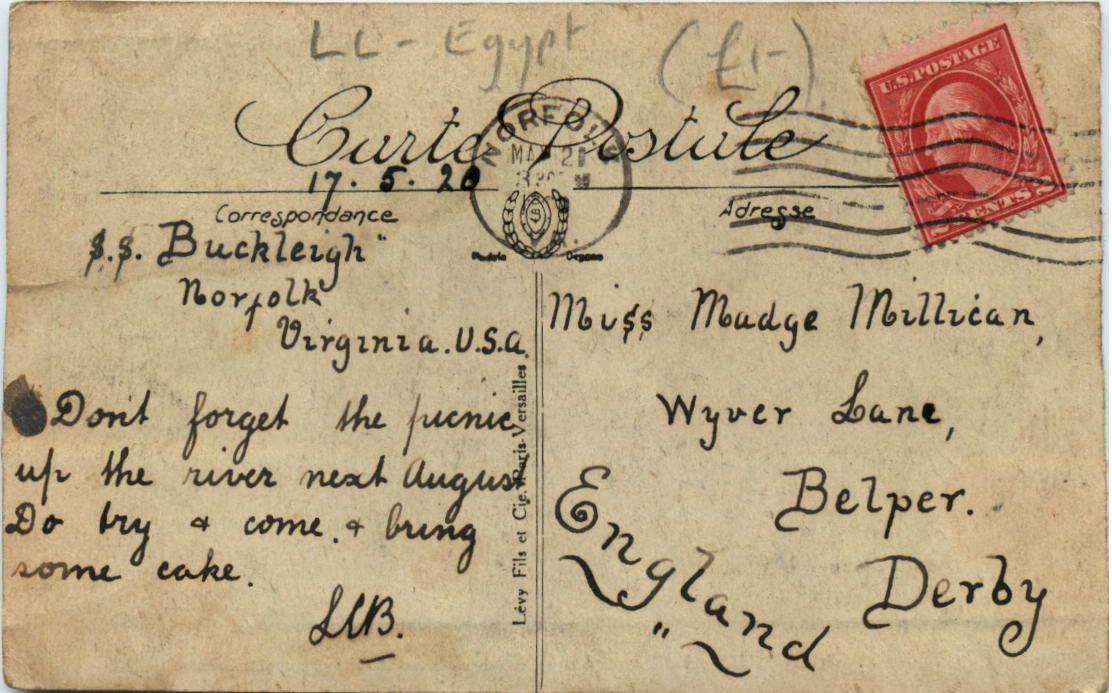 LL - Egypt (£1-)
U.S. POSTAGE
Carte Postale
NORFOLK
MAY 2
17. 5. 20
Correspondance
Adresse
CENTS 2
S.S. Buckleigh"
Norfolk
Virginia. U.S.A.
Don't forget the picnic
up the river next August
Do try & come. & bring
some cake.
Lévy Fils et Cie. Paris-Versailles
Miss Madge Millican,
Wyver Lane,
Belper.
Derby
England